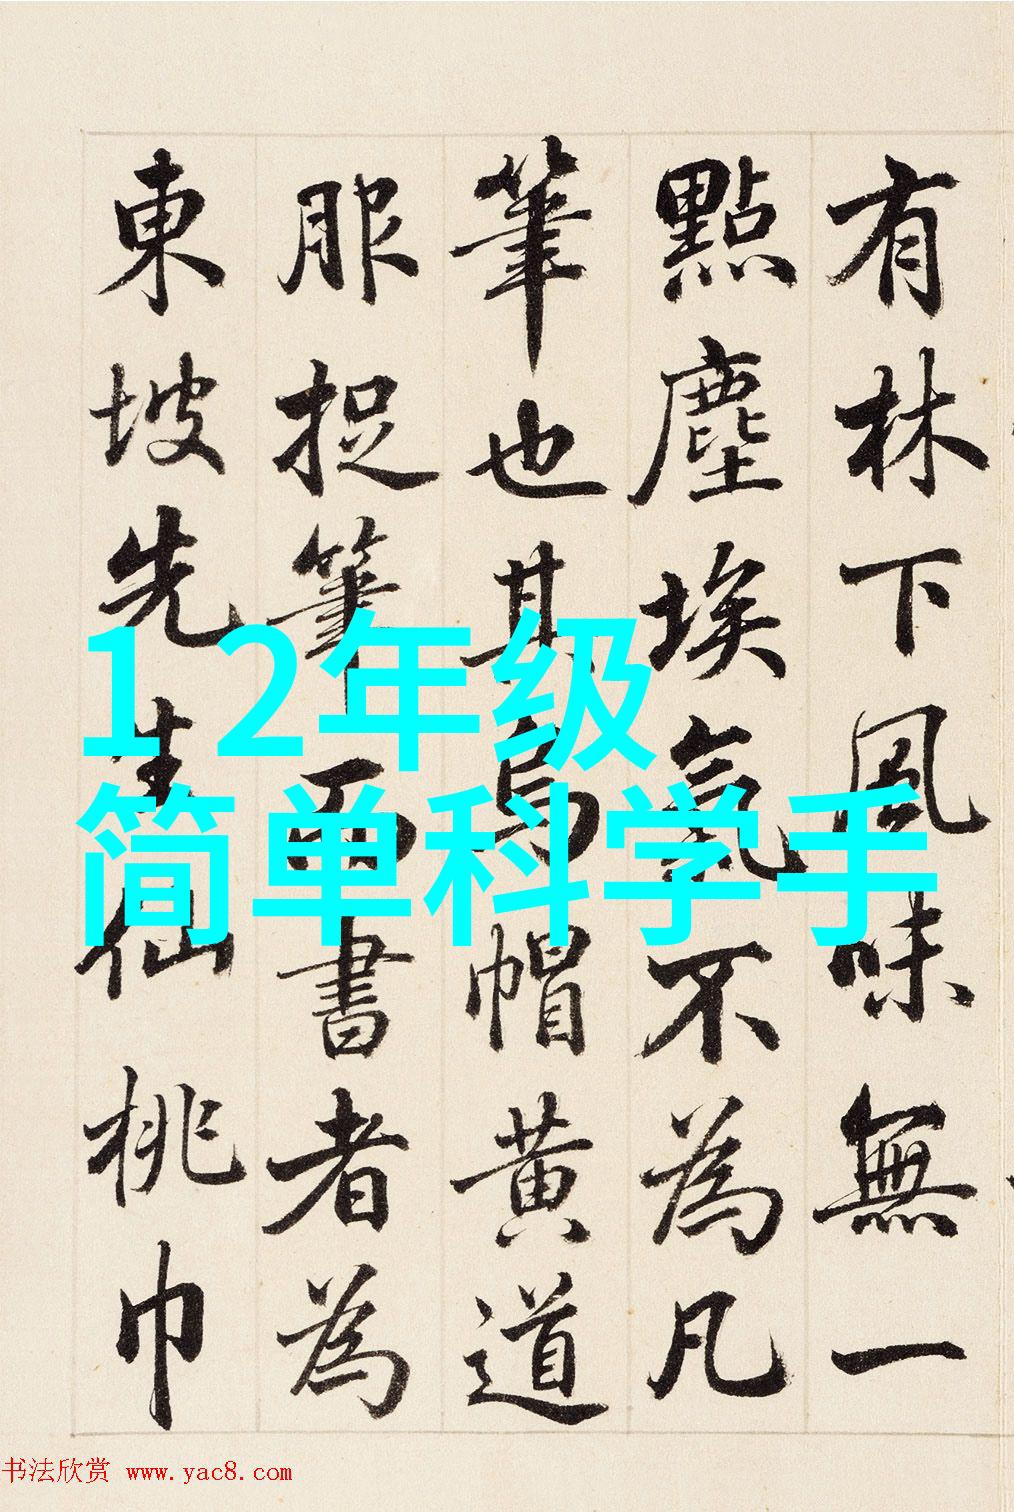 有林下風味無一
點塵埃氣不為凡
筆也其烏帽黃道
服捉筆而書者為
東坡先生仙桃巾
1 2年级
简单科学手
书法欣赏 www.yac8.com